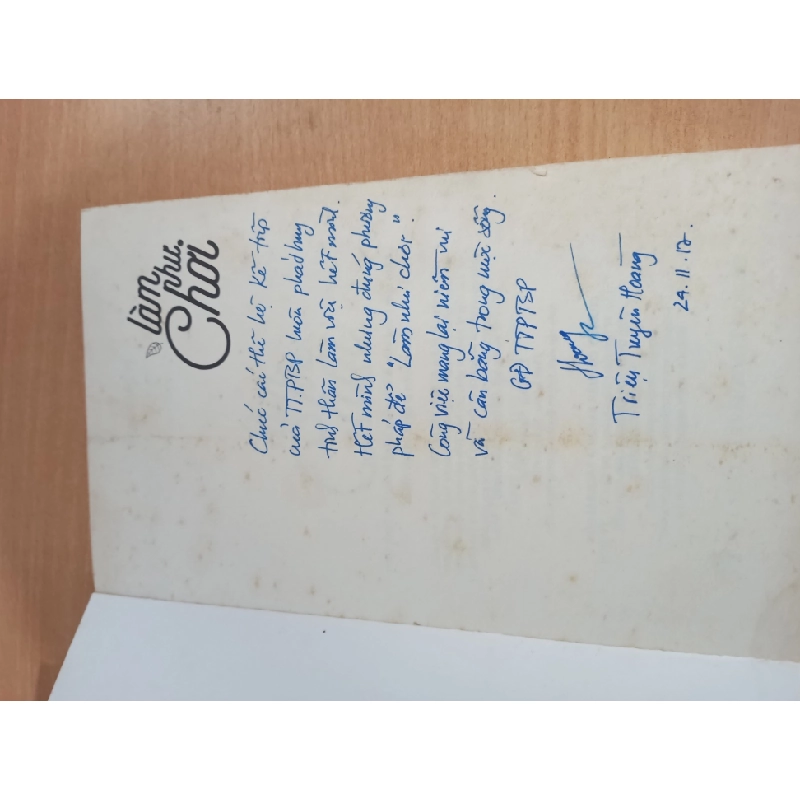 làm
như
Chơi
Chúc các thế hệ kế tiếp
của TT.PTSP luôn phát huy
tinh thần làm việc hết mình.
Hết mình nhưng đúng phương
pháp để "Làm như chơi."
Công việc mang lại niềm vui
và cân bằng trong cuộc sống.
GĐ TTPTSP
Triệu Truyền Hoàng
24.11.17.